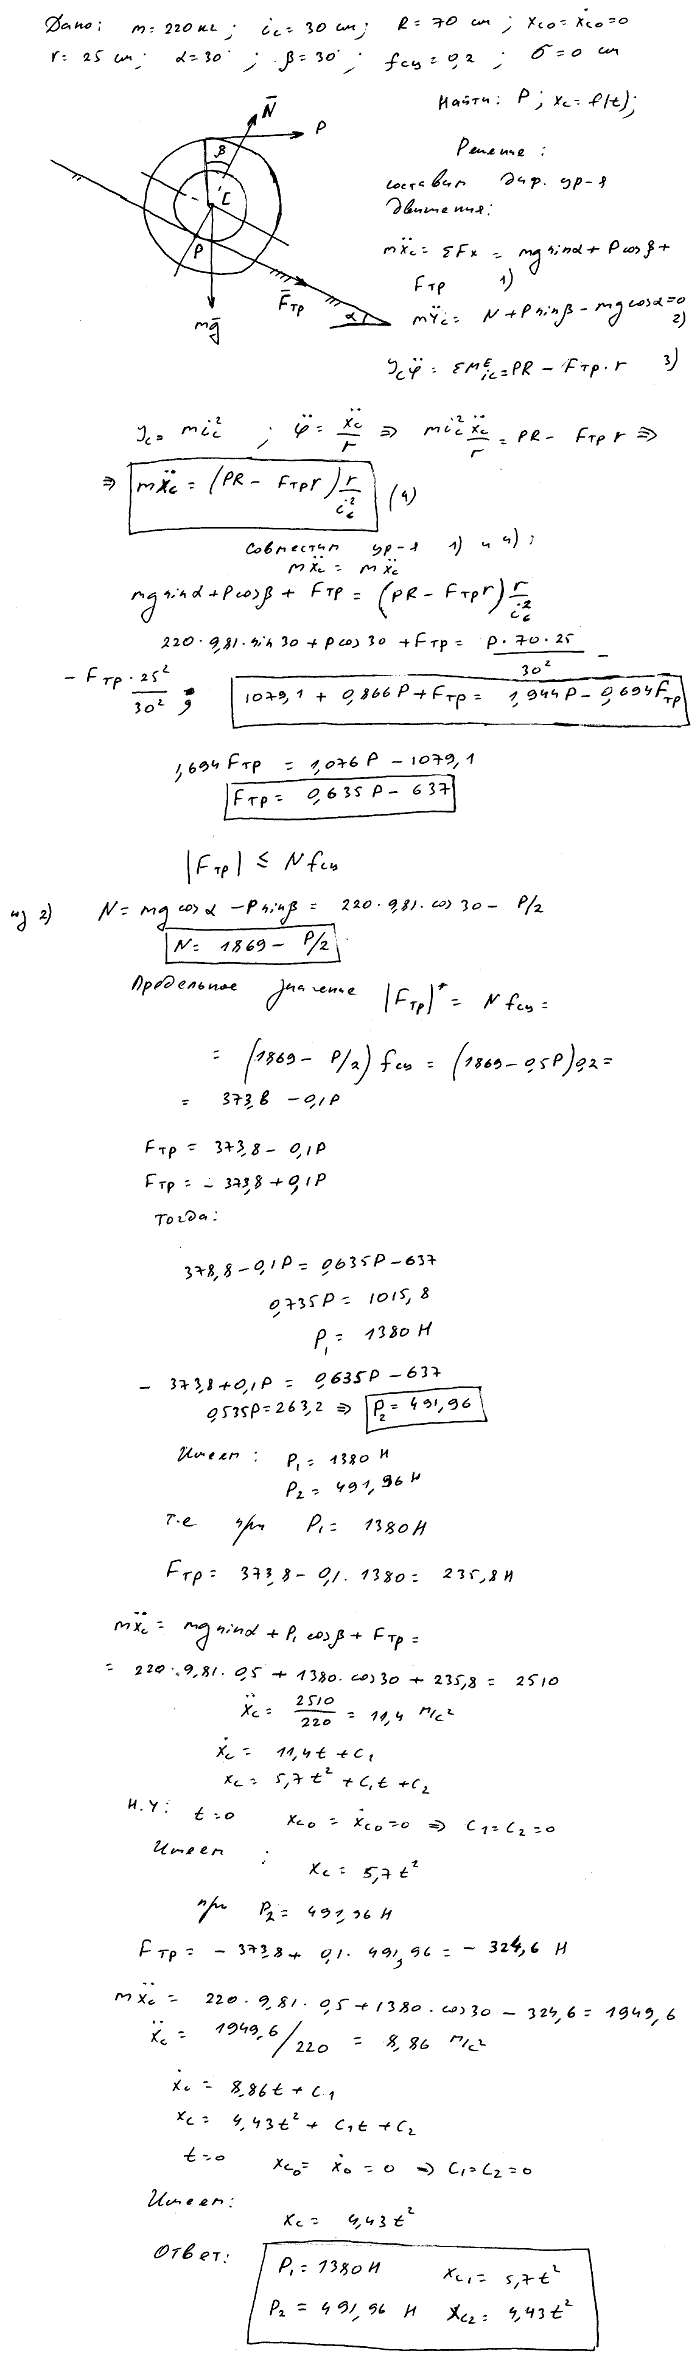 Дано: m = 220 кг; i_c = 30 см; R = 70 см; x_co = ẋ_co = 0
r = 25 см; α = 30°; β = 30°; f_сц = 0,2; δ = 0 см
Найти: P; x_c = f(t);
N̄
P
β
C
P
F̄тр
α
mḡ
Решение:
составим диф. ур-я
движения:
mẍ_c = ΣFx = mg sinα + P cosβ +
Fтр 1)
mÿ_c = N + P sinβ − mg cosα = 0
2)
J_c φ̈ = ΣM^E_ic = PR − Fтр · r 3)
J_c = m i_c² ; φ̈ = ẍ_c/r ⇒ m i_c² ẍ_c/r = PR − Fтр r ⇒
⇒ mẍ_c = (PR − Fтр r) r/i_c² (4)
совместим ур-я 1) и 4):
mẍ_c = mẍ_c
mg sinα + P cosβ + Fтр = (PR − Fтр r) r/i_c²
220 · 9,81 · sin 30 + P cos 30 + Fтр = P · 70 · 25/30² −
− Fтр · 25²/30² ; 1079,1 + 0,866P + Fтр = 1,944P − 0,694Fтр
1,694 Fтр = 1,076 P − 1079,1
Fтр = 0,635 P − 637
|Fтр| ≤ N f_сц
из 2) N = mg cosα − P sinβ = 220 · 9,81 · cos 30 − P/2
N = 1869 − P/2
Предельное значение |Fтр|* = N f_сц =
= (1869 − P/2) f_сц = (1869 − 0,5P) 0,2 =
= 373,8 − 0,1P
Fтр = 373,8 − 0,1P
Fтр = − 373,8 + 0,1P
Тогда:
378,8 − 0,1P = 0,635P − 637
0,735P = 1015,8
P₁ = 1380 Н
− 373,8 + 0,1P = 0,635P − 637
0,535P = 263,2 ⇒ P₂ = 491,96
Имеем: P₁ = 1380 Н
P₂ = 491,96 Н
т.е при P₁ = 1380 Н
Fтр = 373,8 − 0,1 · 1380 = 235,8 Н
mẍ_c = mg sinα + P₁ cosβ + Fтр =
= 220 · 9,81 · 0,5 + 1380 · cos 30 + 235,8 = 2510
ẍ_c = 2510/220 = 11,4 м/с²
ẋ_c = 11,4t + C₁
x_c = 5,7t² + C₁t + C₂
Н.У: t = 0 x_co = ẋ_co = 0 ⇒ C₁ = C₂ = 0
Имеем :
x_c = 5,7t²
при P₂ = 491,96 Н
Fтр = − 373,8 + 0,1 · 491,96 = − 324,6 Н
mẍ_c = 220 · 9,81 · 0,5 + 1380 · cos 30 − 324,6 = 1949,6
ẍ_c = 1949,6/220 = 8,86 м/с²
ẋ_c = 8,86t + C₁
x_c = 4,43t² + C₁t + C₂
t = 0 x_co = ẋ_o = 0 ⇒ C₁ = C₂ = 0
Имеем:
x_c = 4,43t²
Ответ: P₁ = 1380 Н x_c₁ = 5,7t²
P₂ = 491,96 Н x_c₂ = 4,43t²